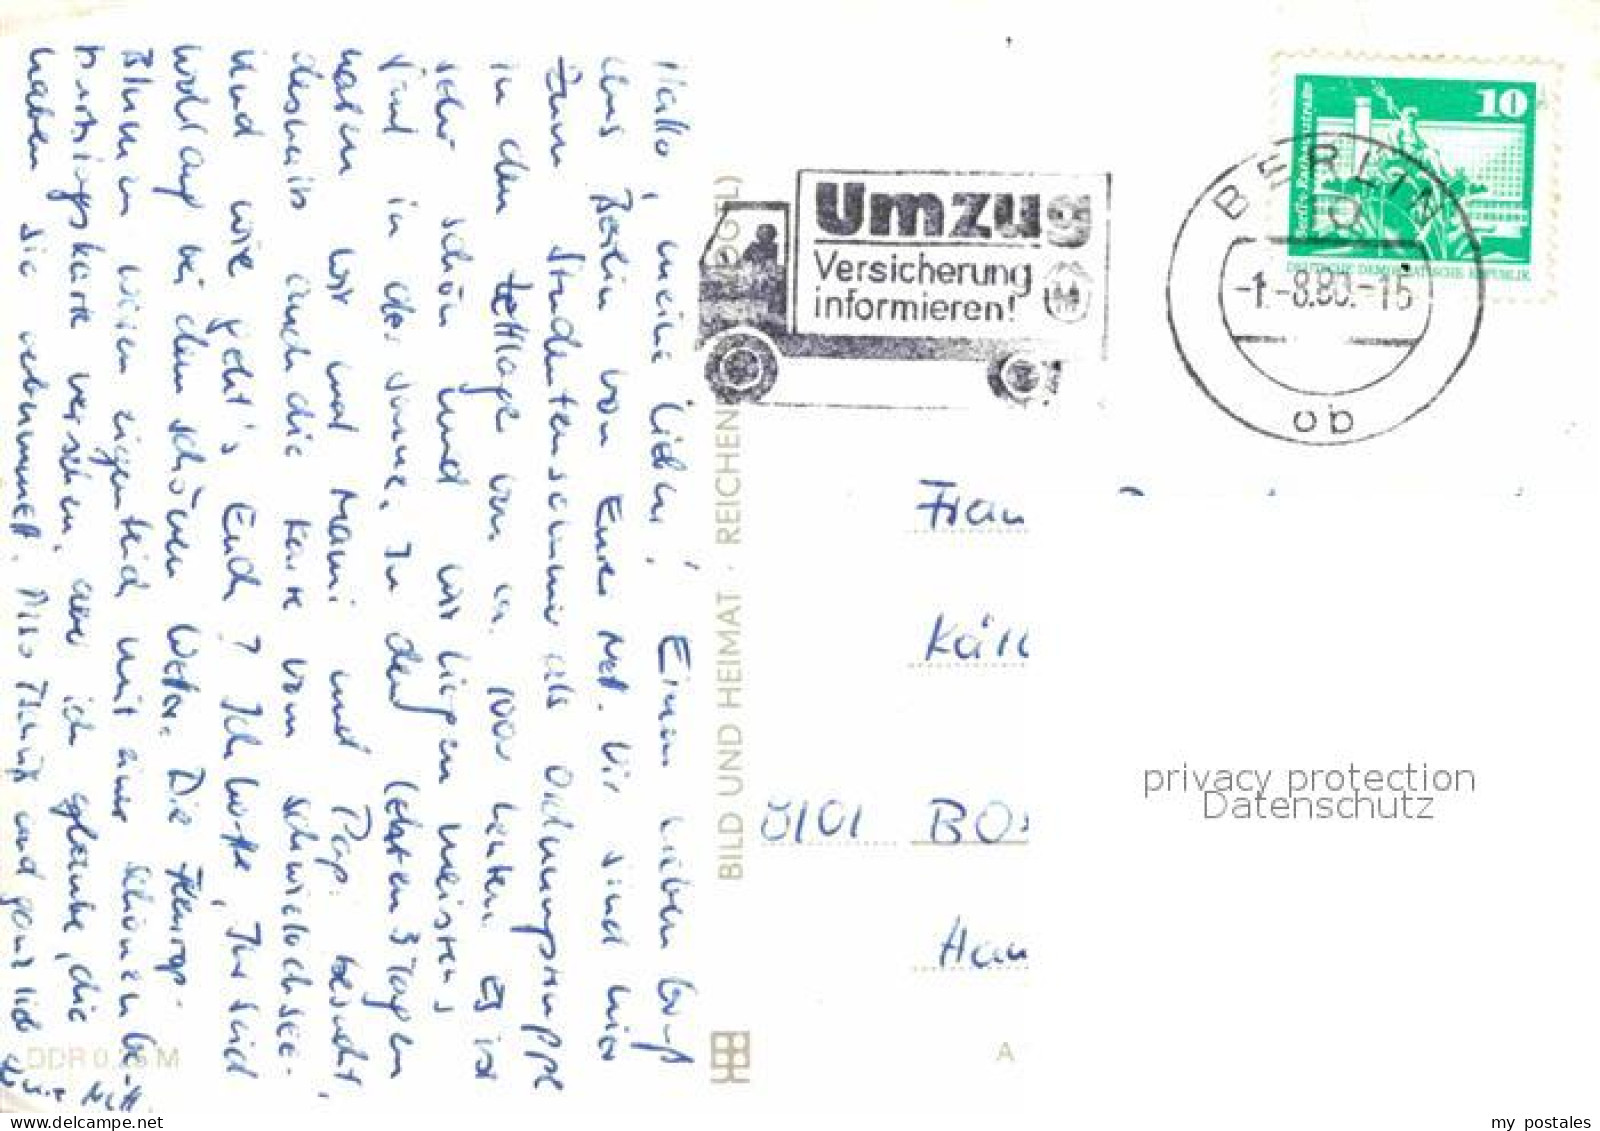 Hallo, meine Lieben! Einen lieben Gruß
aus Berlin von Eurer Net. Wir sind hier
zum Studentensommer als Ordnungsgruppe
in den Zeltlage von ca. 1000 Leuten. Es ist
sehr schön und wir liegen meistens
faul in der Sonne. In den letzten 3 Tagen
haben wir und Mami und Papi besucht,
deshalb auch die Karte vom Schwielochsee.
Und wie geht's Euch? Ich hoffe, Ihr seid
wohlauf bei dem schönen Wetter. Die
Blumen waren eigentlich mit einer schönen
karte versehen, aber ich glaube, die
haben sie verbummelt. Also Tschüß und ganz lieb
BILD UND HEIMAT · REICHEN
OGTL)
DDR 0,25 M
A
Umzug
Versicherung
informieren!
BERLIN
-1.-8.80.-15
ob
10
Berlin, Rathausstraße
DEUTSCHE DEMOKRATISCHE REPUBLIK
Frau
Käth
BO
Hau
privacy protection
Datenschutz
my postales